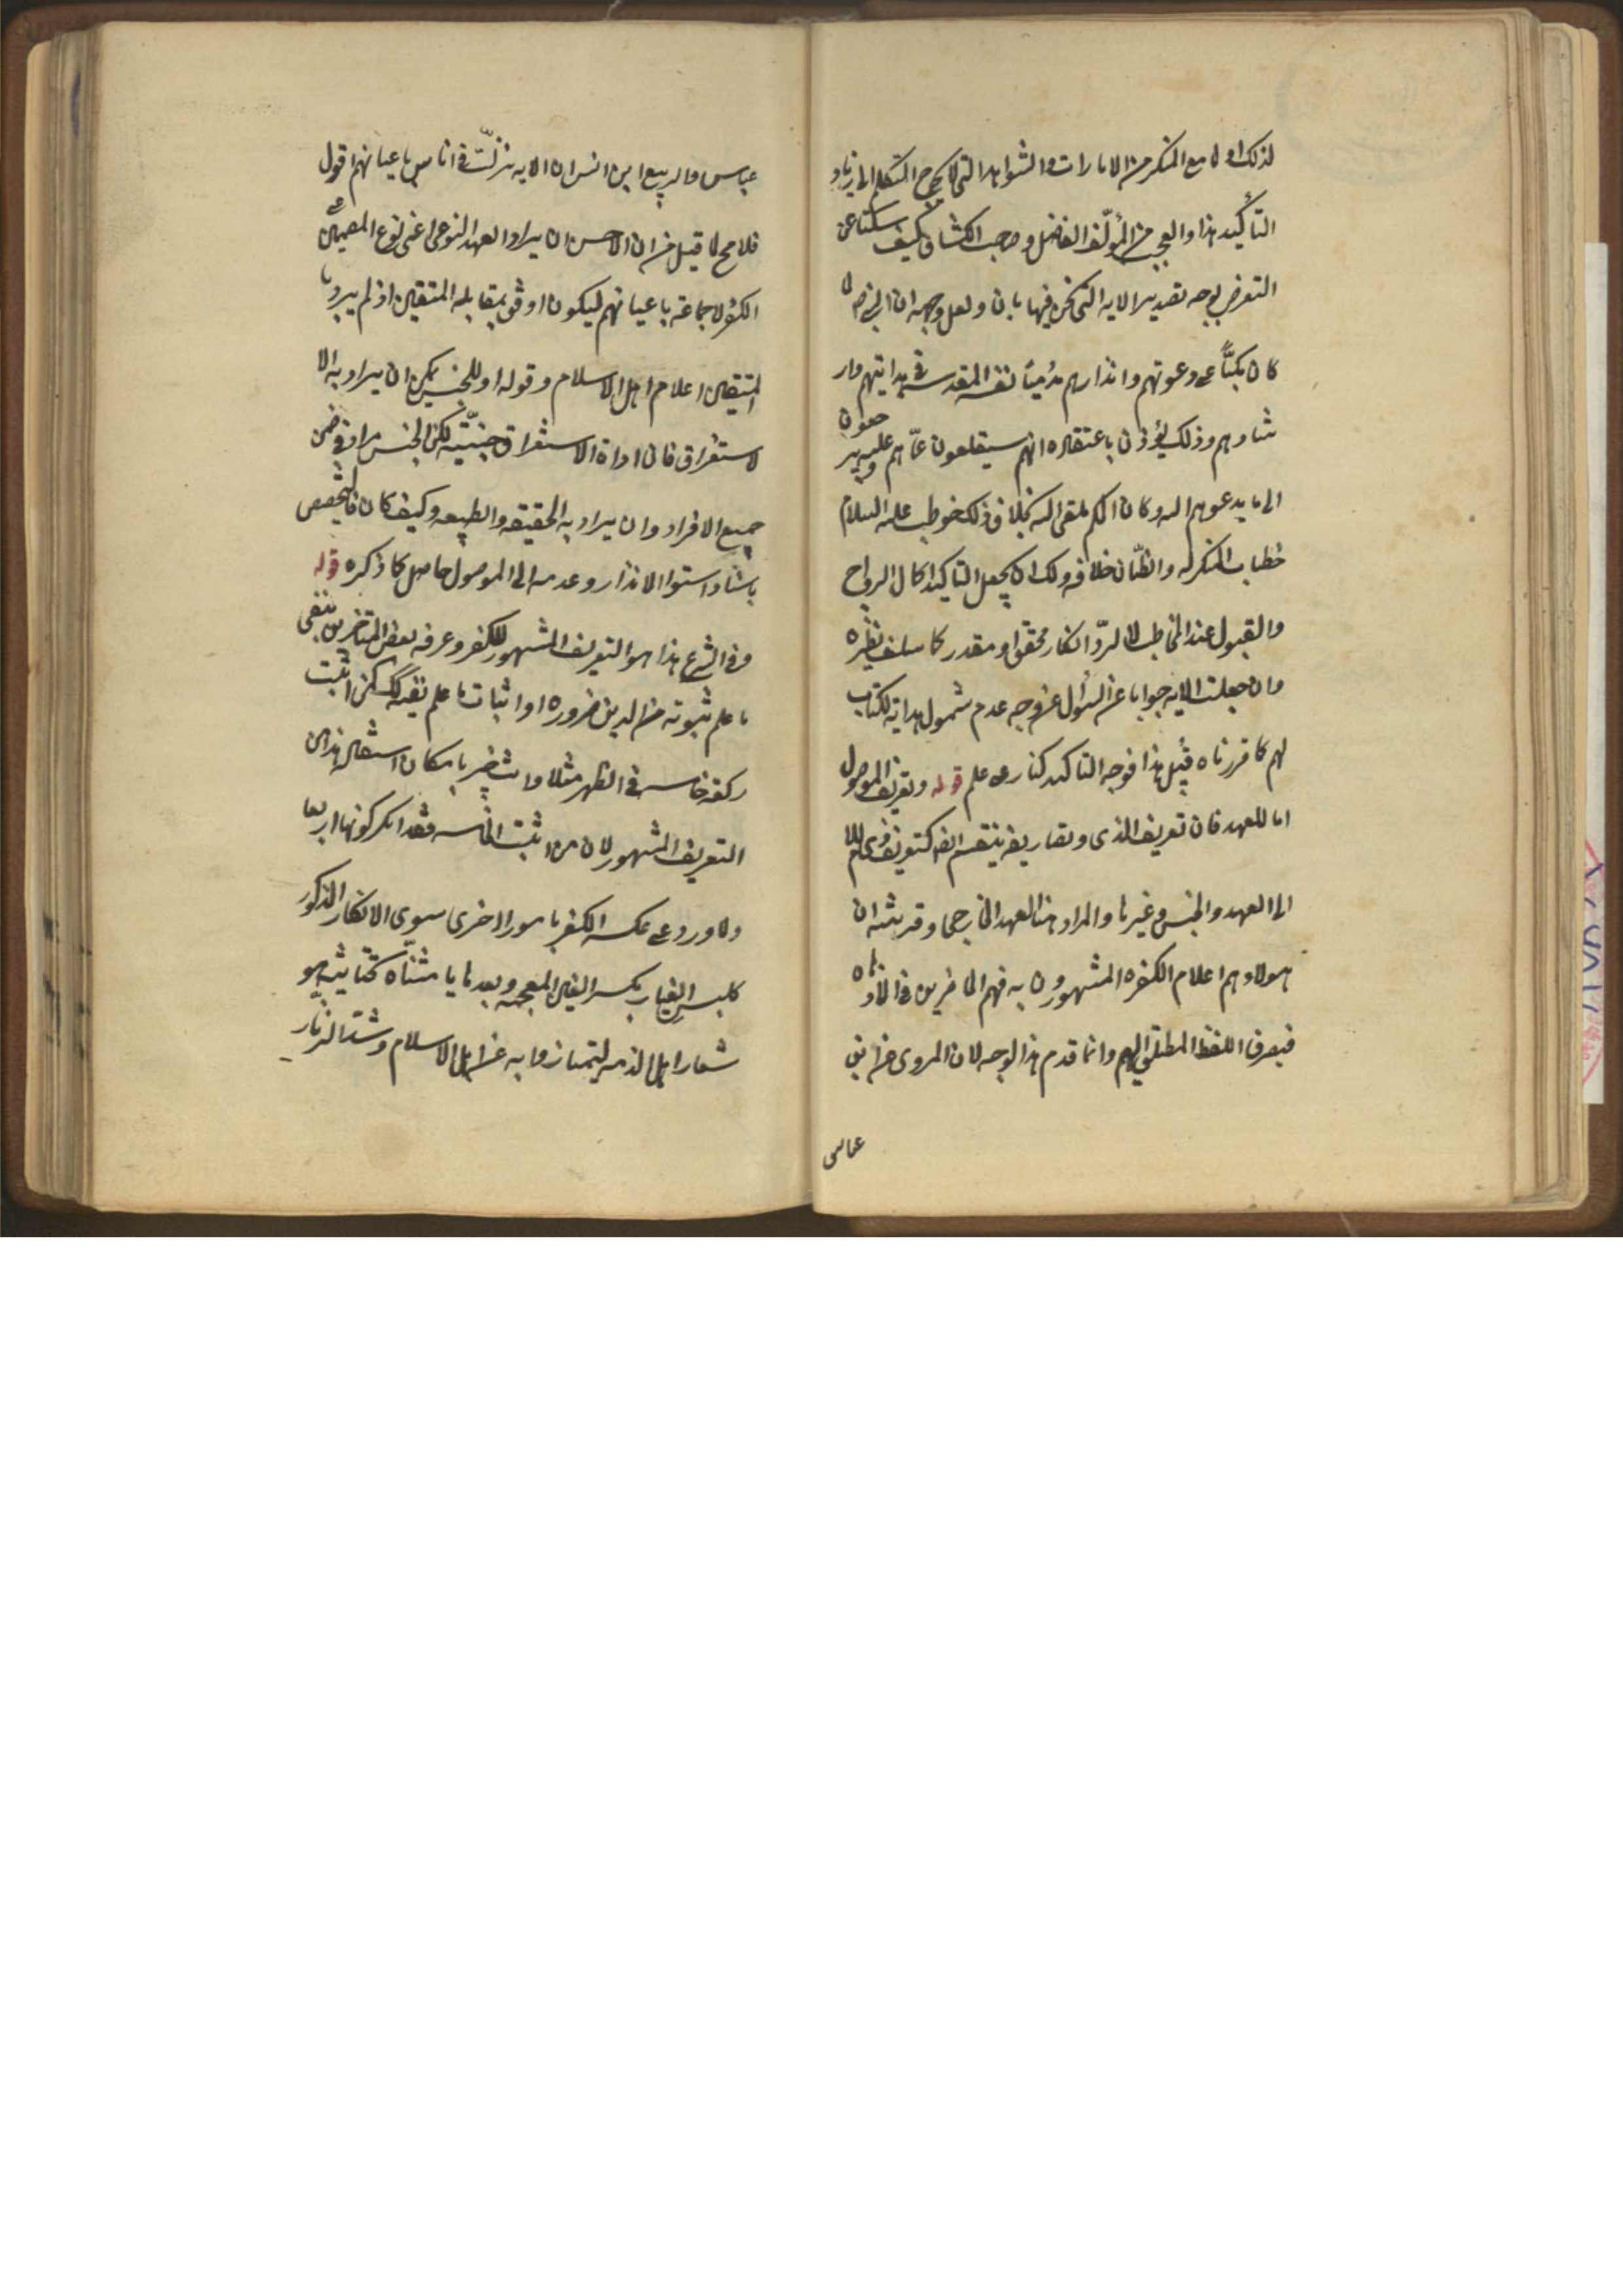 لذلك اولا مع المنكر من الامارات والشواهد التى لا يحوج المتكلم الى زياد
التأكيد هذا والعجب من المؤلف الفاضل وصاحب الكشاف كيف سكتا عن
التعرض لوجه تصدير الايه التى نحن فيها بان ولعل وجهه ان النبى ص لما
كان مكبّاً على دعوتهم وانذارهم نفسه المقدسه فى هدايتهم وار
شادهم وذلك يؤذن باعتقاده انهم سيقلعون عمّا هم عليه ويرجعون
الى ما يدعوهم اليه وكان الحكم الملقى اليه بخلاف ذلك خوطب عليه السلام
خطاب المنكر له والظّان خلافه ولك ان تجعل التاكيد لكمال الرواج
والقبول عند المخاطب لا لردّ انكار محقق او مقدر كما سلف نظيره
وان جعلت الايه جوابا عن السئوال عن وجه عدم شمول هداية الكتاب
لهم كما قررناه قبيل هذا فوجه التاكيد كنار على علم قوله وتعريف الموصول
اما للعهد فان تعريف الذى وتصاريفه ينقسم كتعريف ذى اللام
الى العهد والجنس وغيرها والمراد هنا العهد الخارجى وقرينته ان
هولاء وهم اعلام الكفره المشهورون به فهم الحاضرين فى الاذهان
فيصرف اللفظ المطلق اليهم وانما قدم هذا الوجه لان المروى عن ابن
عباس
عباس والربيع ابن انس ان الايه نزلت فى اناس باعيانهم اقول
فلا مجال لما قيل من ان الاحسن ان يراد العهد النوعى اعنى نوع المصممين على
الكفر لا جماعة باعيانهم ليكون اوفق بمقابله المتقين اذ لم يرد با
المتيقين اعلام اهل الاسلام وقوله او للجنس يمكن ان يراد به الا
لاستغراق فان اداة الاستغراق جنسيّة لكن الجنس مراد فى ضمن
جميع الافراد وان يراد به الحقيقه والطبيعه وكيف كان فالتخصيص
باسناد استواء الانذار وعدمه الى الموصول حاصل كما ذكره قوله
وفى الشرع هذا هو التعريف المشهور للكفر وعرفه بعض المتاخرين بنفى
ما علم ثبوته من الدين ضروره او اثبات ما علم نفيه كذلك كمن اثبت
ركعة خامسه فى الظهر مثلا وانت خبير بامكان استقلال هذا من
التعريف المشهور لان من اثبت الخامسه فقد انكر كونها اربعا
ولما ورد على عكسه الكفر بامور اخرى سوى الانكار المذكور
كلبس الغيار بكسر الغين المعجمه وبعدها يا مثنّاه تحتانيه هو
شعار اهل الذمه ليتمازوا به عن اهل الاسلام وشدّ الزنار